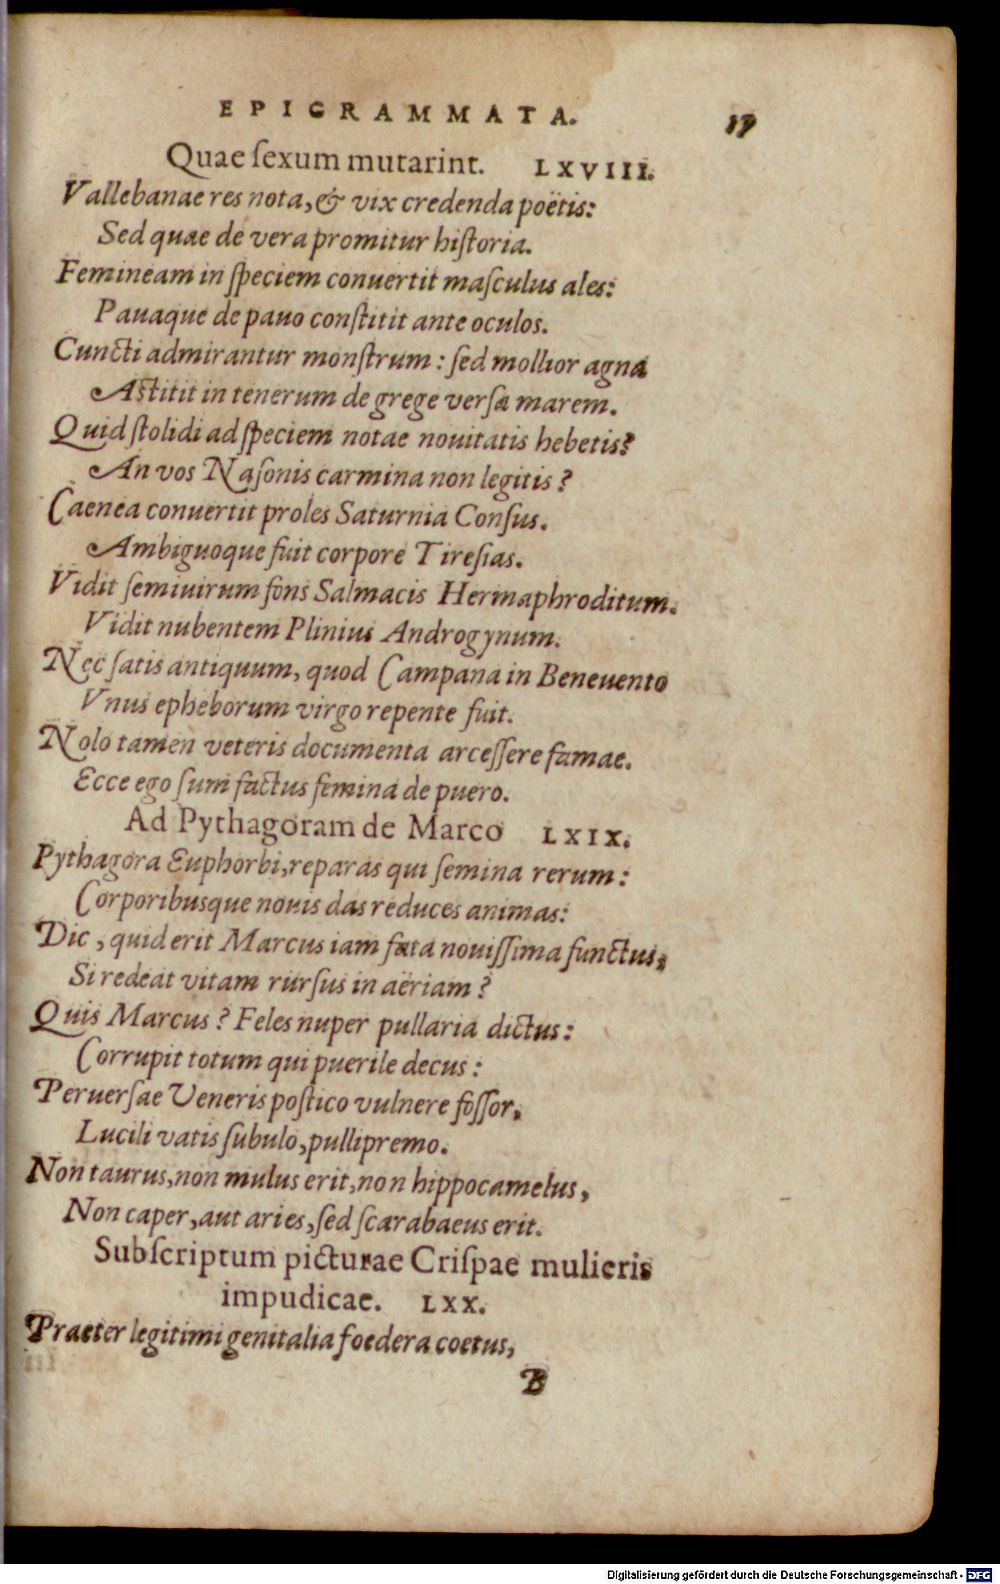 EPIGRAMMATA. 17
Quae ſexum mutarint. LXVIII.
Vallebanae res nota, & vix credenda poëtis:
Sed quae de vera promitur hiſtoria.
Femineam in ſpeciem conuertit maſculus ales:
Pauaque de pauo conſtitit ante oculos.
Cuncti admirantur monſtrum: ſed mollior agna
Aſtitit in tenerum de grege verſa marem.
Quid ſtolidi ad ſpeciem notae nouitatis hebetis?
An vos Naſonis carmina non legitis?
Caenea conuertit proles Saturnia Conſus.
Ambiguoque fuit corpore Tireſias.
Vidit ſemiuirum fons Salmacis Hermaphroditum.
Vidit nubentem Plinius Androgynum.
Nec ſatis antiquum, quod Campana in Beneuento
Vnus epheborum virgo repente fuit.
Nolo tamen veteris documenta arceſſere famae.
Ecce ego ſum factus femina de puero.
Ad Pythagoram de Marco LXIX.
Pythagora Euphorbi, reparas qui ſemina rerum:
Corporibusque nouis das reduces animas:
Dic, quid erit Marcus iam fata nouiſſima functus,
Si redeat vitam rurſus in aëriam?
Quis Marcus? Feles nuper pullaria dictus:
Corrupit totum qui puerile decus:
Peruerſae Veneris poſtico vulnere foſſor,
Lucili vatis ſubulo, pullipremo.
Non taurus, non mulus erit, non hippocamelus,
Non caper, aut aries, ſed ſcarabaeus erit.
Subſcriptum picturae Criſpae mulieris
impudicae. LXX.
Praeter legitimi genitalia foedera coetus,
B
Digitalisierung gefördert durch die Deutsche Forschungsgemeinschaft - DFG